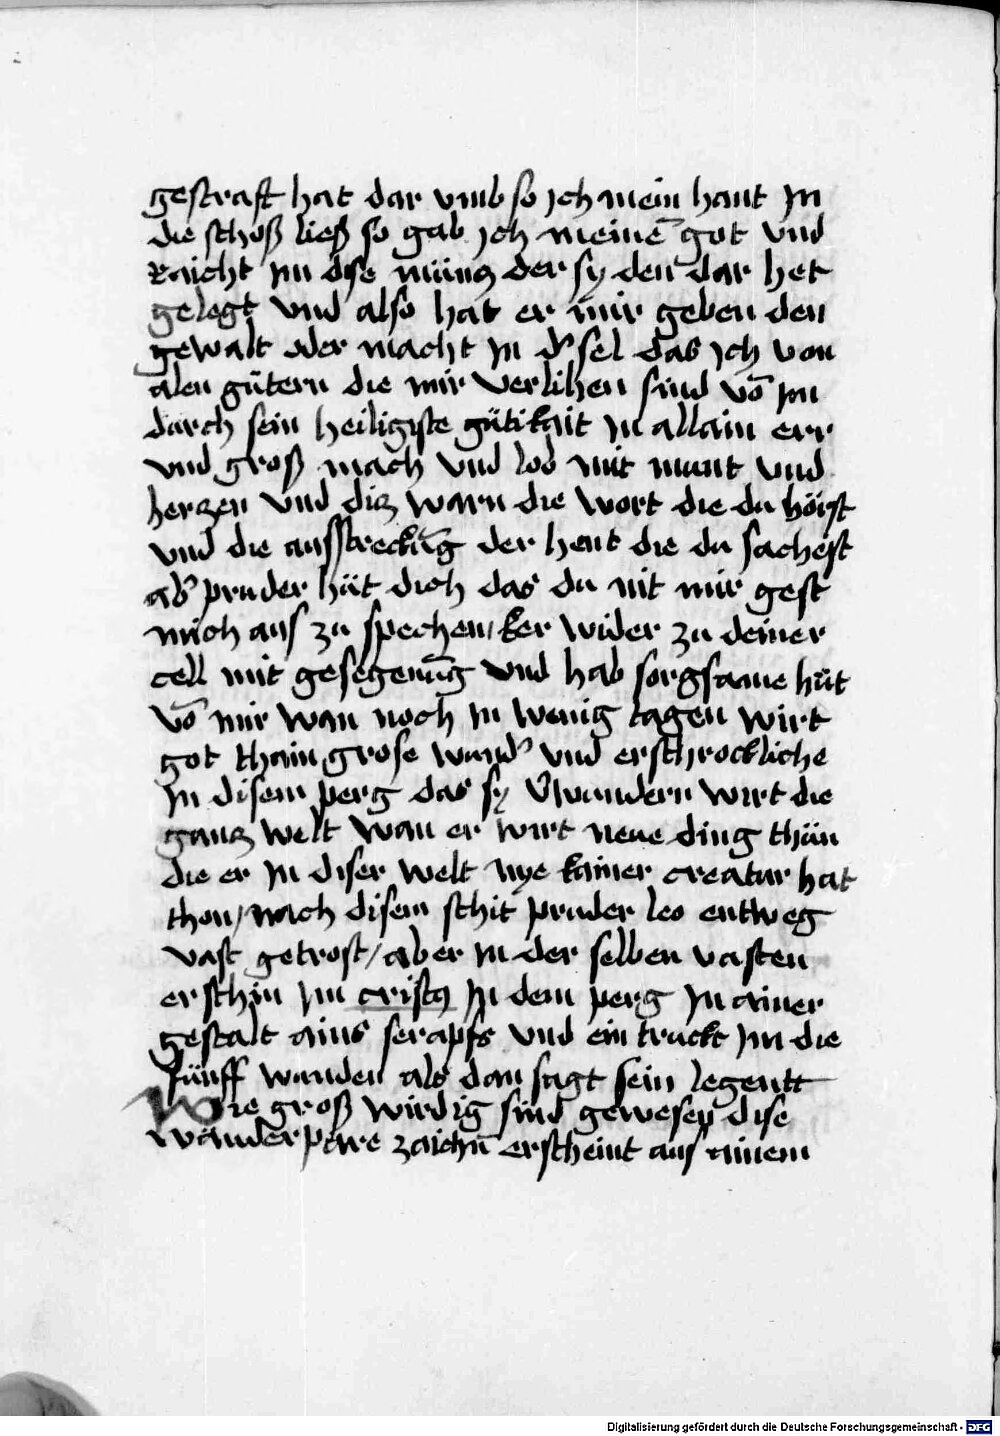 gestraft hat dar vmb so jch mein hant jn
die schoß ließ so gab jch meinē got vnd
Raicht jm dise münz der sy den dar het
gelegt vnd also hat er mir geben den
gewalt oder macht jn dʼ sel das jch von
alen gütern die mir verlihen sind vō jm
durch sein heiligiste gütikait jn allain err
vnd groß mach vnd lob mit munt vnd
herzen vnd diz warn die wort die du hörst
vnd die ausstreckūg der hent die du sachest
abʼ pruder hüt dich das du nit mir gest
mich aus zu spechen / ker wider zu deiner
cell mit gesegenūg vnd hab sorgsame hüt
vō mir wan noch jn wenig tagen wirt
got thain grose wundʼ vnd erschrockliche
jn disem perg das sy v̄wundern wirt die
ganz welt wan er wirt neue ding thün
die er jn diser welt nye kainer creatur hat
thon / nach disem schit pruder leo entweg
vast getrost / aber jn der selben vasten
erschin jm cristꝯ jn dem perg jn ainer
gestalt ains serapfs vnd ein truckt jm die
fünff wunden als dan sagt sein legentt
Wie groß wirdig sind gewesen dise
wunderpare zaichn̄ erscheint aus ainem
Digitalisierung gefördert durch die Deutsche Forschungsgemeinschaft - DFG